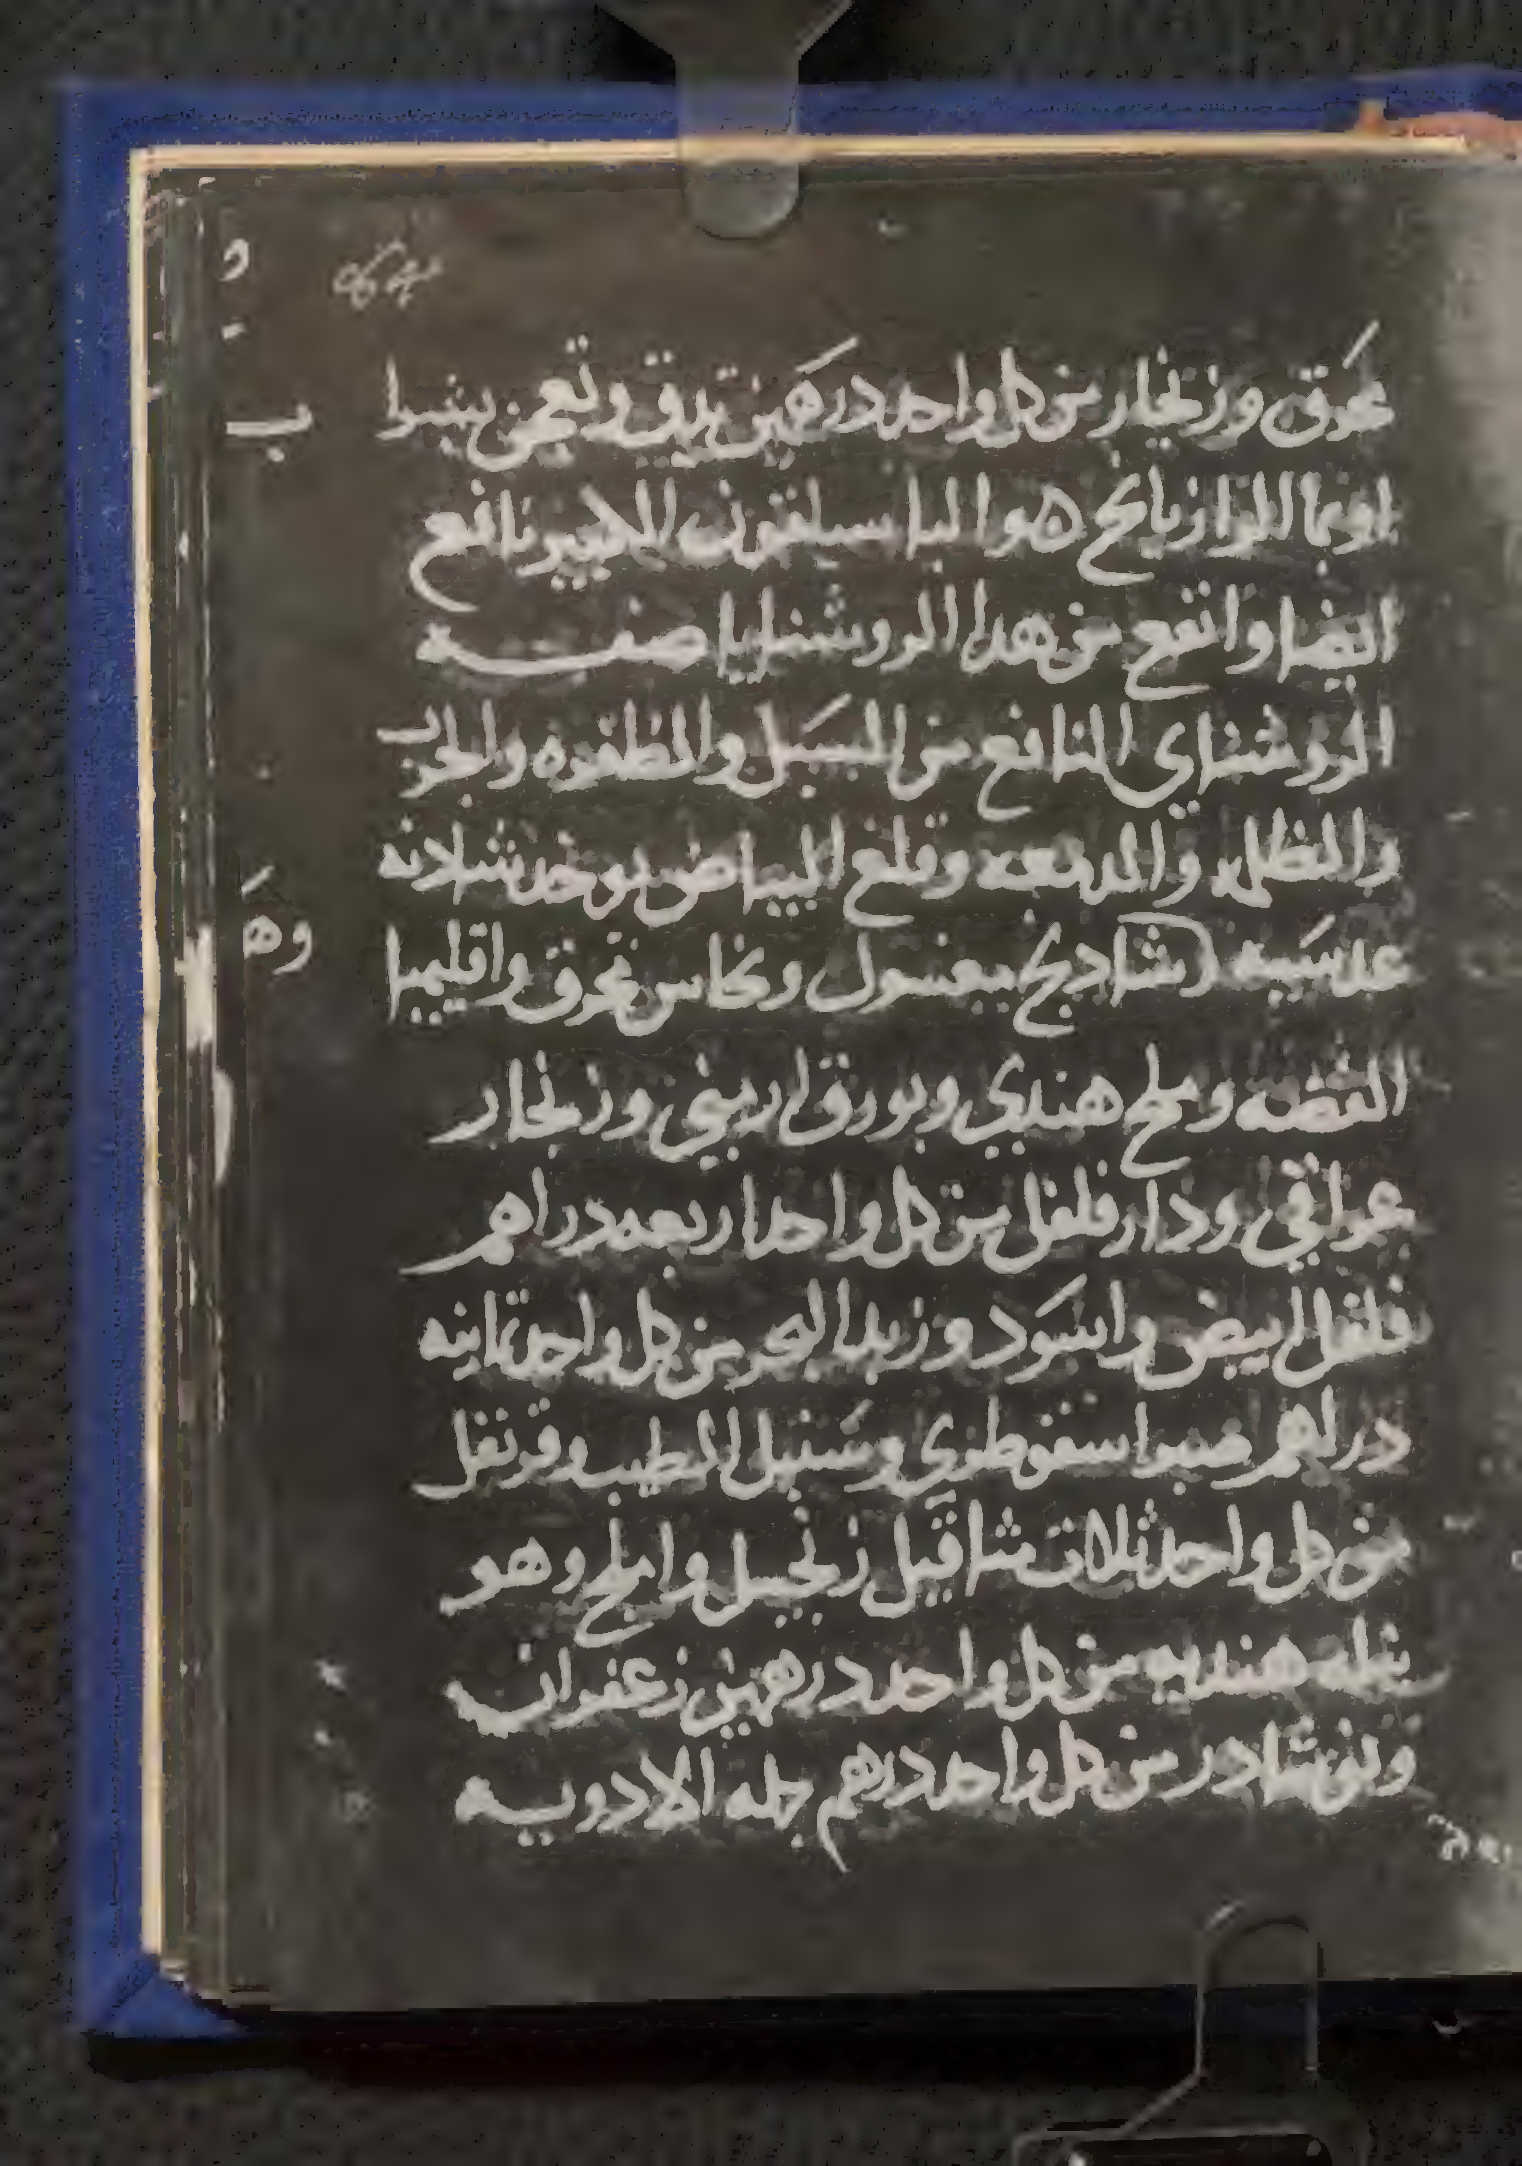 محرق وزنجار من كل واحد درهمين تدق وتعجن بنسرا
اوبما الرازيانج هو الباسيليقون الكبير نافع
ايضا وانفع من هدا الروشنايا صفـــه
الروشناي النافع من السَبَل والظفره والجرب
والظلمه والدمعه وقلع البياض يوخد شلاثه
عدسَيه شادنج مغسول ونحاس محرق واقليميا
الفضه وملح هندي وبورق ارميني وزنجار
عراقي ودار فلفل من كل واحد اربعه دراهم
فلفل ابيض واسَود وزبد البحر من كل واحد ثمانيه
دراهم صبر اسقوطري وسَنبل الطيب وقرنفل
من كل واحد ثلاث مثاقيل زنجبيل واملج وهو
هنديه من كل واحد درهمين زعفران
ونوشادر من كل واحد درهم جمله الادويــه